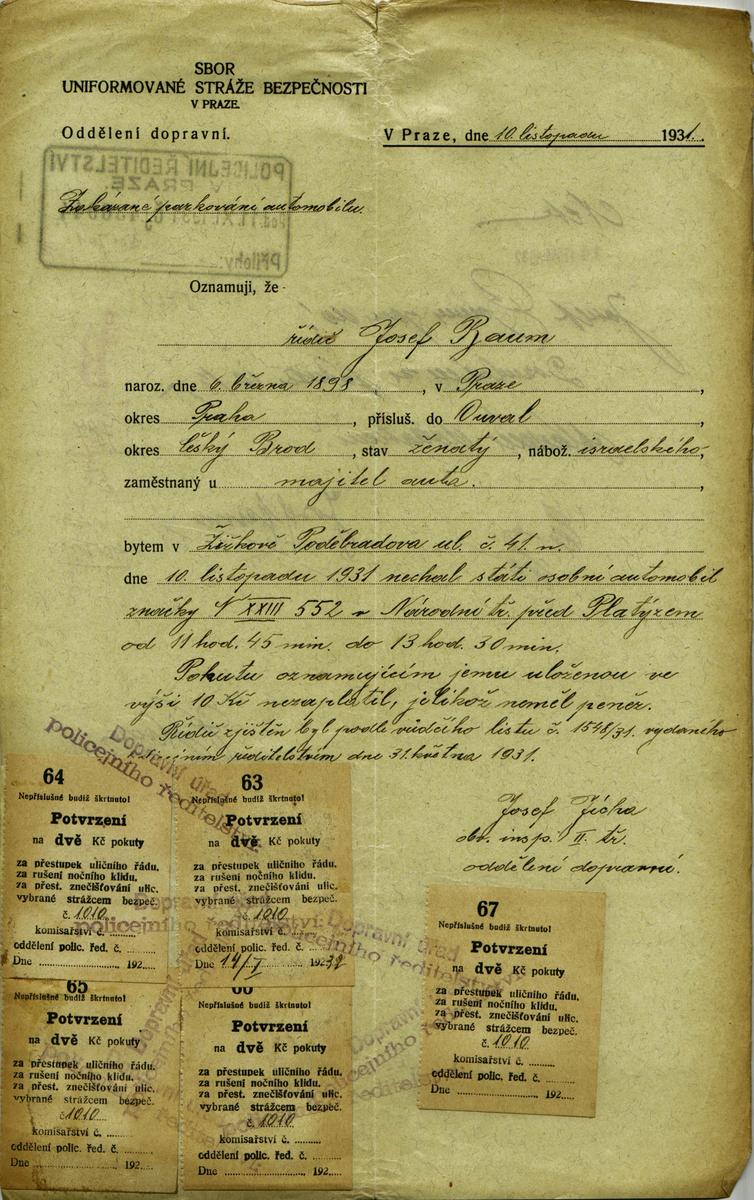 SBOR
UNIFORMOVANÉ STRÁŽE BEZPEČNOSTI
V PRAZE.
Oddělení dopravní.
V Praze, dne 10. listopadu 1931.
POLICEJNÍ ŘEDITELSTVÍ
V PRAZE
Přílohy:
Zakázané parkování automobilu.
Oznamuji, že
řidič Josef Baum
naroz. dne 6. března 1898, v Praze,
okres Praha, přísluš. do Ouval
okres Český Brod, stav ženatý, nábož. israelského,
zaměstnaný u majitel auta.,
bytem v Žižkově Poděbradova ul. č. 41. n.
dne 10. listopadu 1931 nechal státi osobní automobil
značky N XXIII 552 v Národní tř. před Platýzem
od 11 hod. 45 min. do 13 hod. 30 min.
Pokutu oznamujícím jemu uloženou ve
výši 10 Kč nezaplatil, jelikož neměl peněz.
Řidič zjištěn byl podle vůdčího listu č. 1548/31. vydaného
policejním ředitelstvím dne 31. května 1931.
Josef Jícha
obv. insp. II. tř.
oddělení dopravní.
Dopravní úřad
policejního ředitelství
64
Nepříslušné budiž škrtnuto!
Potvrzení
na dvě Kč pokuty
za přestupek uličního řádu.
za rušení nočního klidu.
za přest. znečišťování ulic.
vybrané strážcem bezpeč.
č. 1010
komisařství č.
oddělení polic. řed. č.
Dne 192
63
Nepříslušné budiž škrtnuto!
Potvrzení
na dvě Kč pokuty
za přestupek uličního řádu.
za rušení nočního klidu.
za přest. znečišťování ulic.
vybrané strážcem bezpeč.
č. 1010
komisařství č.
oddělení polic. řed. č.
Dne 14/I 192 32
Dopravní úřad
policejního ředitelství
Dopravní úřad
policejního ředitelství
67
Nepříslušné budiž škrtnuto!
Potvrzení
na dvě Kč pokuty
za přestupek uličního řádu.
za rušení nočního klidu.
za přest. znečišťování ulic.
vybrané strážcem bezpeč.
č. 1010
komisařství č.
oddělení polic. řed. č.
Dne 192
65
Nepříslušné budiž škrtnuto!
Potvrzení
na dvě Kč pokuty
za přestupek uličního řádu.
za rušení nočního klidu.
za přest. znečišťování ulic.
vybrané strážcem bezpeč.
č. 1010
komisařství č.
oddělení polic. řed. č.
Dne 192
66
Nepříslušné budiž škrtnuto!
Potvrzení
na dvě Kč pokuty
za přestupek uličního řádu.
za rušení nočního klidu.
za přest. znečišťování ulic.
vybrané strážcem bezpeč.
č. 1010
komisařství č.
oddělení polic. řed. č.
Dne 192
Dopravní úřad
policejního ředitelství